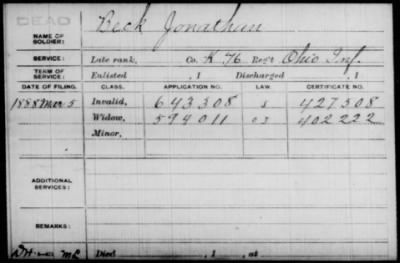 DEAD
Beck Jonathan
NAME OF SOLDIER:
SERVICE: Late rank, Co. K 76 Reg't Ohio Inf.
TERM OF SERVICE: Enlisted , 1 Discharged , 1
DATE OF FILING. CLASS. APPLICATION NO. LAW. CERTIFICATE NO.
1888 Mar 5 Invalid, 643308 427308
Widow, 594011 402222
Minor,
ADDITIONAL SERVICES:
REMARKS:
Died , 1 , at